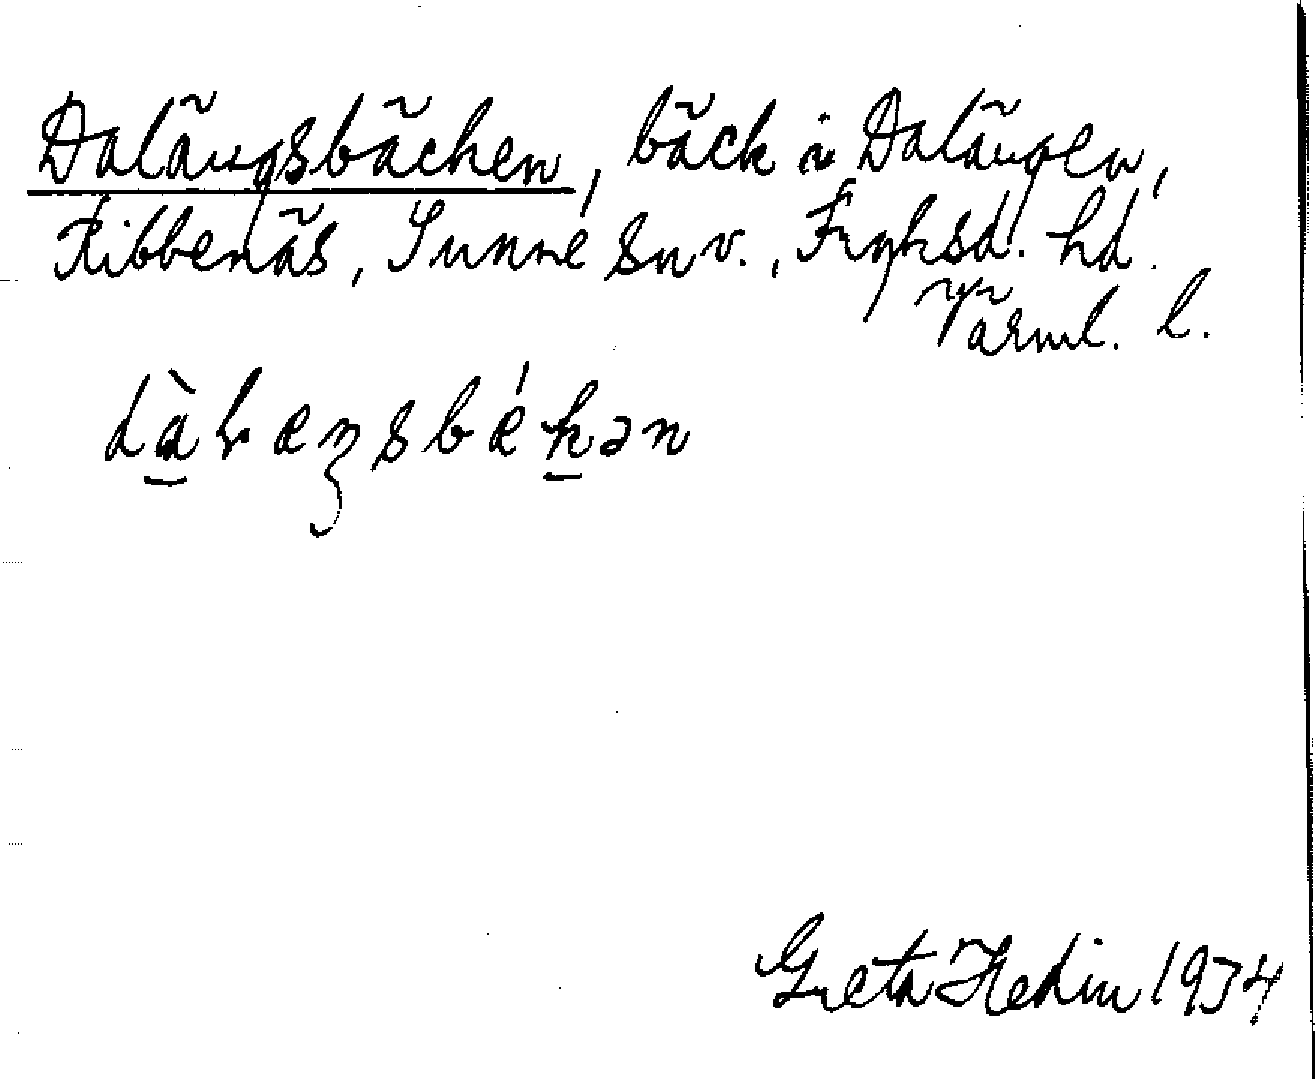 Dalängsbäcken, bäck i Dalängen,
Ribbenäs, Sunne snv., Fryksd. hd.
Värml. l.
dàlæŋsbǽkən
Greta Hedin 1934